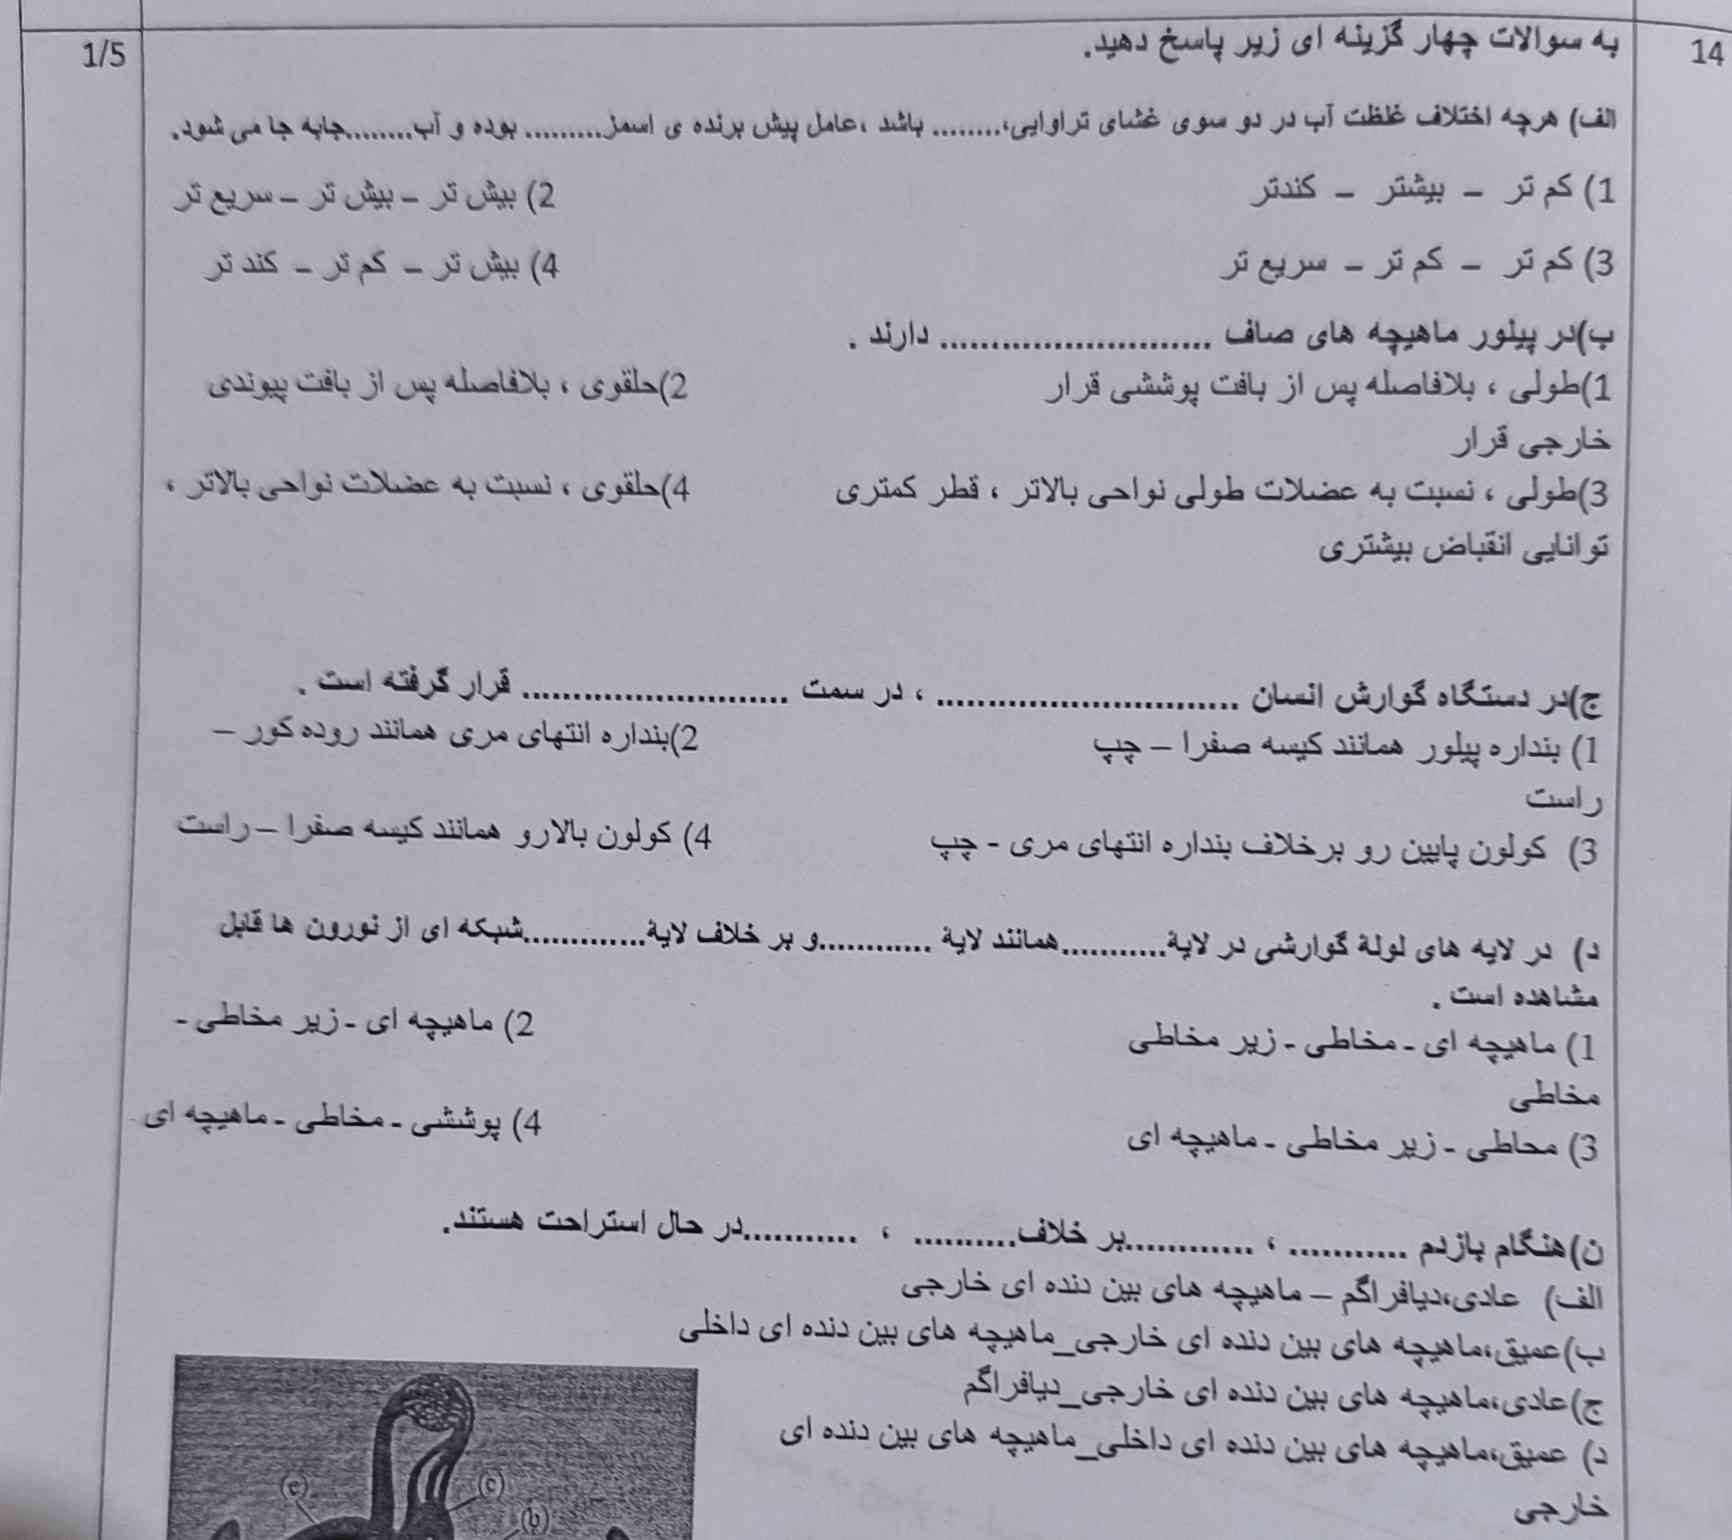 14
به سوالات چهار گزینه ای زیر پاسخ دهید.
1/5
الف) هرچه اختلاف غلظت آب در دو سوی غشای تراوایی،........ باشد ،عامل پیش برنده ی اسمز......... بوده و آب........جابه جا می شود.
1) کم تر – بیشتر – کندتر
2) بیش تر – بیش تر – سریع تر
3) کم تر – کم تر – سریع تر
4) بیش تر – کم تر – کند تر
ب)در پیلور ماهیچه های صاف ........................... دارند .
1)طولی ، بلافاصله پس از بافت پوششی قرار
2)حلقوی ، بلافاصله پس از بافت پیوندی
خارجی قرار
3)طولی ، نسبت به عضلات طولی نواحی بالاتر ، قطر کمتری
4)حلقوی ، نسبت به عضلات نواحی بالاتر ،
توانایی انقباض بیشتری
ج)در دستگاه گوارش انسان .............................. ، در سمت ........................... قرار گرفته است .
1) بنداره پیلور همانند کیسه صفرا – چپ
2)بنداره انتهای مری همانند روده کور –
راست
3) کولون پایین رو برخلاف بنداره انتهای مری - چپ
4) کولون بالارو همانند کیسه صفرا – راست
د) در لایه های لولۀ گوارشی در لایۀ...........همانند لایۀ ............و بر خلاف لایۀ.............شبکه ای از نورون ها قابل
مشاهده است .
1) ماهیچه ای - مخاطی - زیر مخاطی
2) ماهیچه ای - زیر مخاطی -
مخاطی
3) محاطی - زیر مخاطی - ماهیچه ای
4) پوششی - مخاطی - ماهیچه ای
ن)هنگام بازدم ............ ، .............بر خلاف.......... ، ...........در حال استراحت هستند.
الف) عادی،دیافراگم – ماهیچه های بین دنده ای خارجی
ب)عمیق،ماهیچه های بین دنده ای خارجی_ماهیچه های بین دنده ای داخلی
ج)عادی،ماهیچه های بین دنده ای خارجی_دیافراگم
د) عمیق،ماهیچه های بین دنده ای داخلی_ماهیچه های بین دنده ای
خارجی
(e)
(c)
(b)